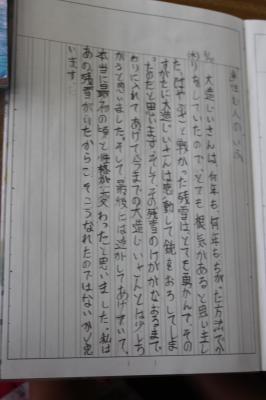 大造じいさんは、何年も、何年もちがった方法でか
りをしていたので、とても根気があると思いまし
た。はやぶさと戦った残雪は、とても勇かんで、その
すがたに大造じいさんは感動して銃をおろしてしま
ったと思います。そして、その残雪のけががなおるまで
おりに入れてあげて、今までの大造じいさんとは少しち
がうと思いました。そして最後には逃がしてあげていて、
本当に最初の頃と性格が変わったと思いました。私は
あの残雪がいたからこそこうなれたのではないかと思
います。